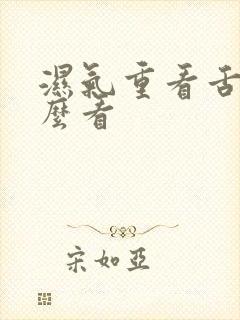 濕氣重看舌
麼看
宋如亞